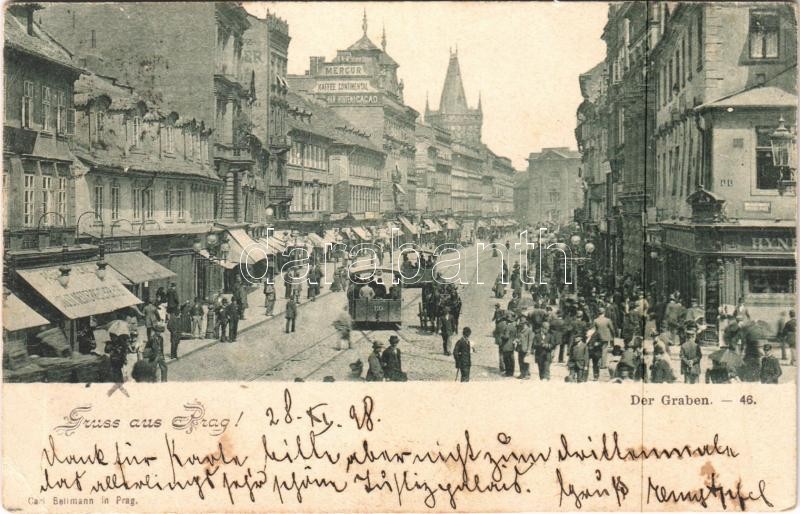 MERCUR
KAFFEE CONTINENTAL
VAN HOUTEN CACAO
HYNE
darabanth
Der Graben. — 46.
Gruss aus Prag!
28. XI. 98.
Dank für Karte bitte aber nicht zum drittenmale
das allerdings sehr schöne Justizpalais. Gruß
Carl Bellmann in Prag.